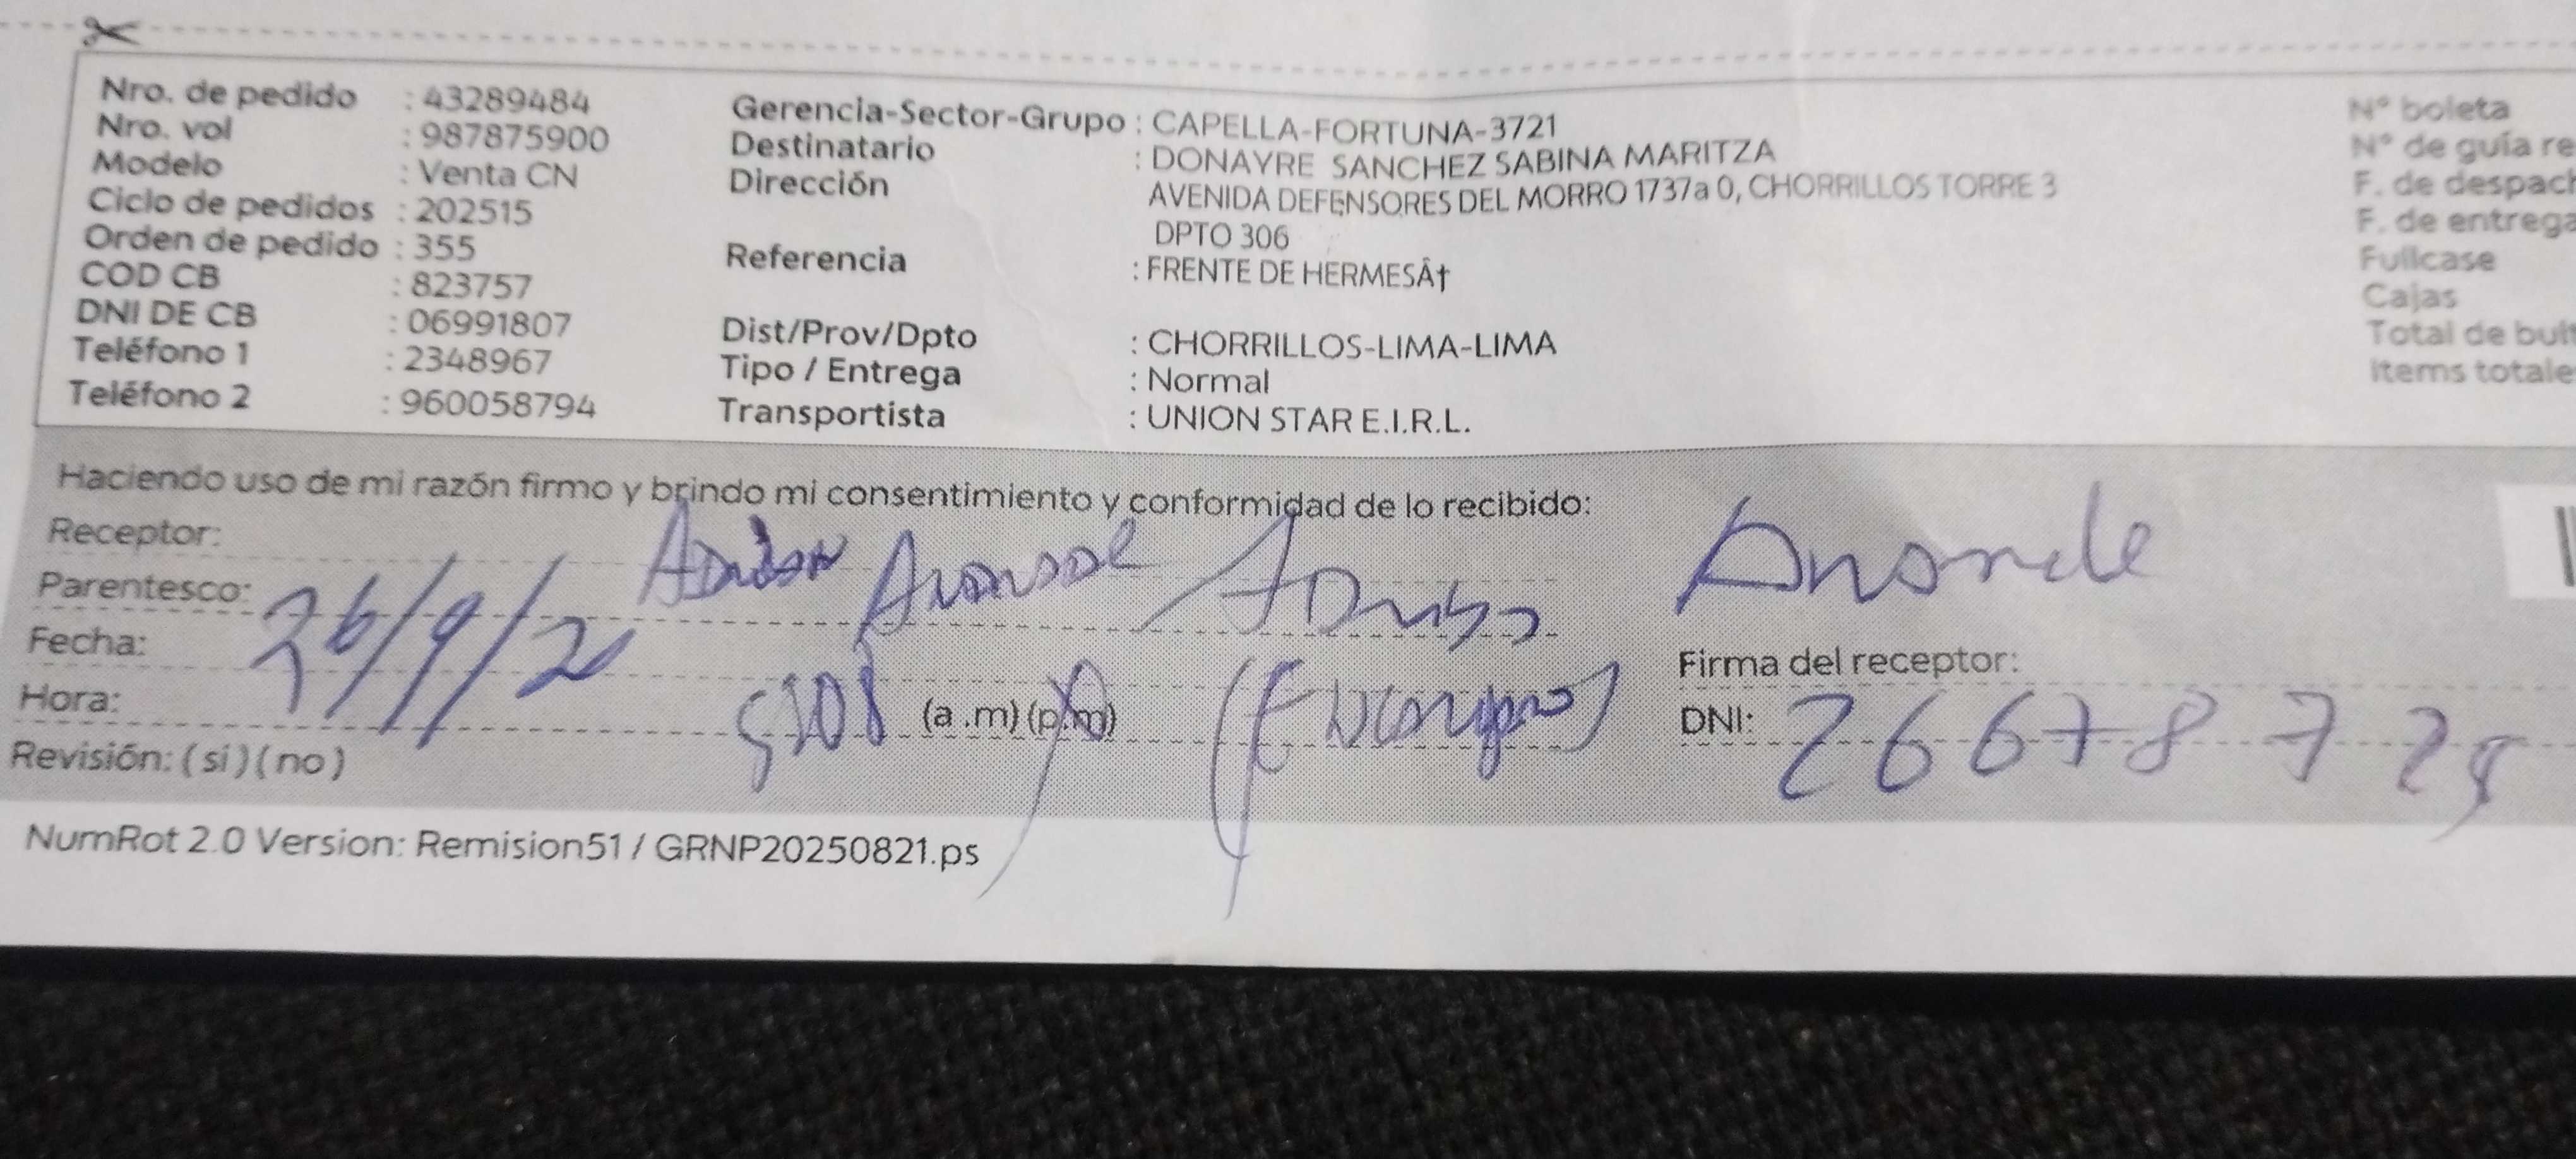 Nro. de pedido : 43289484
Nro. vol : 987875900
Modelo : Venta CN
Ciclo de pedidos : 202515
Orden de pedido : 355
COD CB : 823757
DNI DE CB : 06991807
Teléfono 1 : 2348967
Teléfono 2 : 960058794
Gerencia-Sector-Grupo : CAPELLA-FORTUNA-3721
Destinatario : DONAYRE SANCHEZ SABINA MARITZA
Dirección AVENIDA DEFENSORES DEL MORRO 1737a 0, CHORRILLOS TORRE 3
DPTO 306
Referencia : FRENTE DE HERMESÂ†
Dist/Prov/Dpto : CHORRILLOS-LIMA-LIMA
Tipo / Entrega : Normal
Transportista : UNION STAR E.I.R.L.
N° boleta
N° de guía re
F. de despach
F. de entrega
Fullcase
Cajas
Total de bult
Items totales
Haciendo uso de mi razón firmo y brindo mi consentimiento y conformidad de lo recibido:
Receptor:
Parentesco:
Fecha: 26/9/2
Hora: (a .m) (p.m)
Revisión: ( si ) ( no )
Firma del receptor:
DNI: 26678725
NumRot 2.0 Version: Remision51 / GRNP20250821.ps